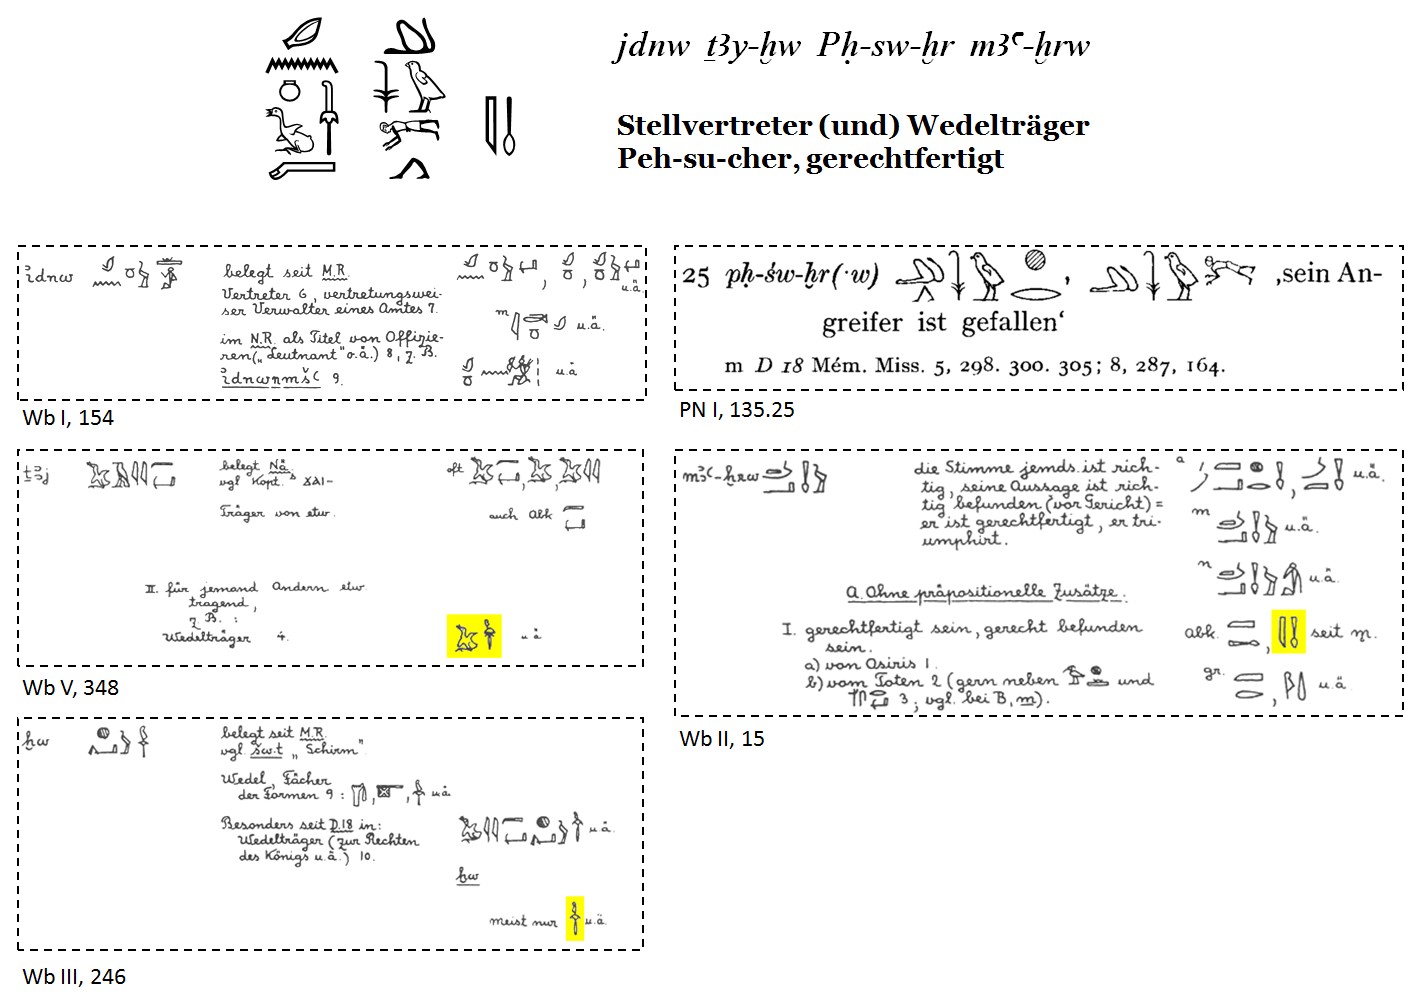 jdnw ṯꜣy-ḫw Pḥ-sw-ḫr mꜣꜥ-ḫrw
Stellvertreter (und) Wedelträger
Peh-su-cher, gerechtfertigt
ἰdnw
belegt seit M.R.
Vertreter 6, vertretungswei-
ser Verwalter eines Amtes 7.
im N.R. als Titel von Offizie-
ren („Leutnant" o.ä.) 8, z. B.
ἰdnwnmšꜥ 9.
u.ä.
m u.ä.
u.ä
Wb I, 154
25 pḥ-św-ḫr(·w) , ‚sein An-
greifer ist gefallen‘
m D 18 Mém. Miss. 5, 298. 300. 305; 8, 287, 164.
PN I, 135.25
ṯꜣj
belegt Nä
vgl. Kopt. ϫⲁⲓ-
Träger von etw.
oft
auch Abk
II. für jemand Andern etw.
tragend,
z. B. :
Wedelträger 4.
u. ä
Wb V, 348
mꜣꜥ-ḫrw
die Stimme jemds. ist rich-
tig, seine Aussage ist rich-
tig befunden (vor Gericht) =
er ist gerechtfertigt, er tri-
umphirt.
a u.ä.
m u.ä.
n u.ä.
A. Ohne präpositionelle Zusätze.
I. gerechtfertigt sein, gerecht befunden
sein.
a) von Osiris 1.
b) vom Toten 2 (gern neben und
3; vgl. bei B, m).
abk. , seit m.
gr. , u.ä
Wb II, 15
ḫw
belegt seit M.R.
vgl. šw.t „Schirm"
Wedel, Fächer
der Formen 9 : , , u.ä.
Besonders seit D.18 in:
Wedelträger (zur Rechten
des Königs u.ä.) 10.
u.ä.
ḫw
meist nur u.ä.
Wb III, 246